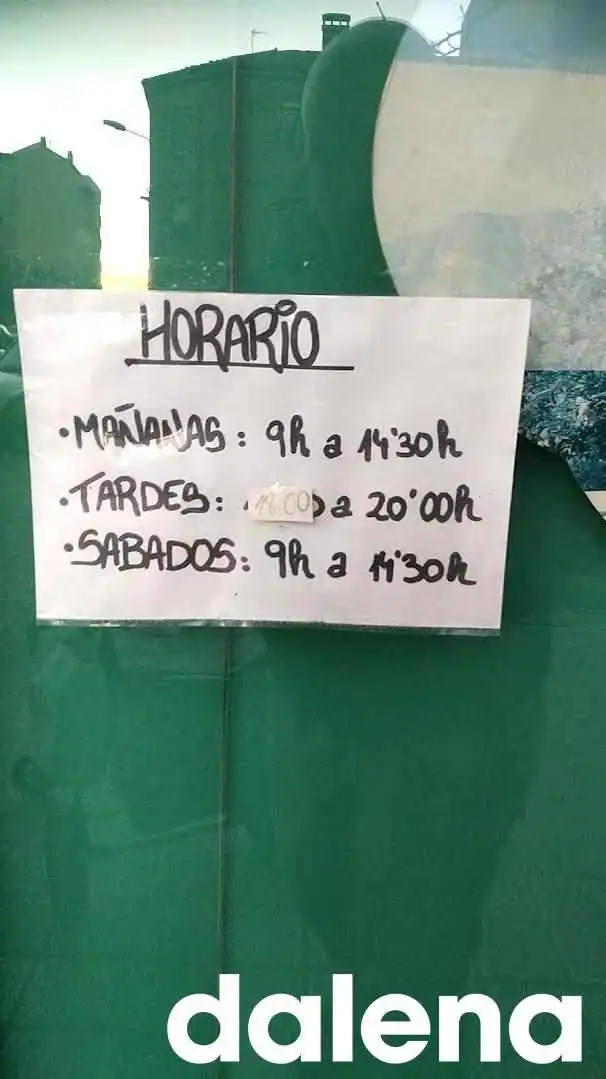 HORARIO
·MAÑANAS: 9h a 14'30h
·TARDES: a 20'00h
·SABADOS: 9h a 14'30h
dalena